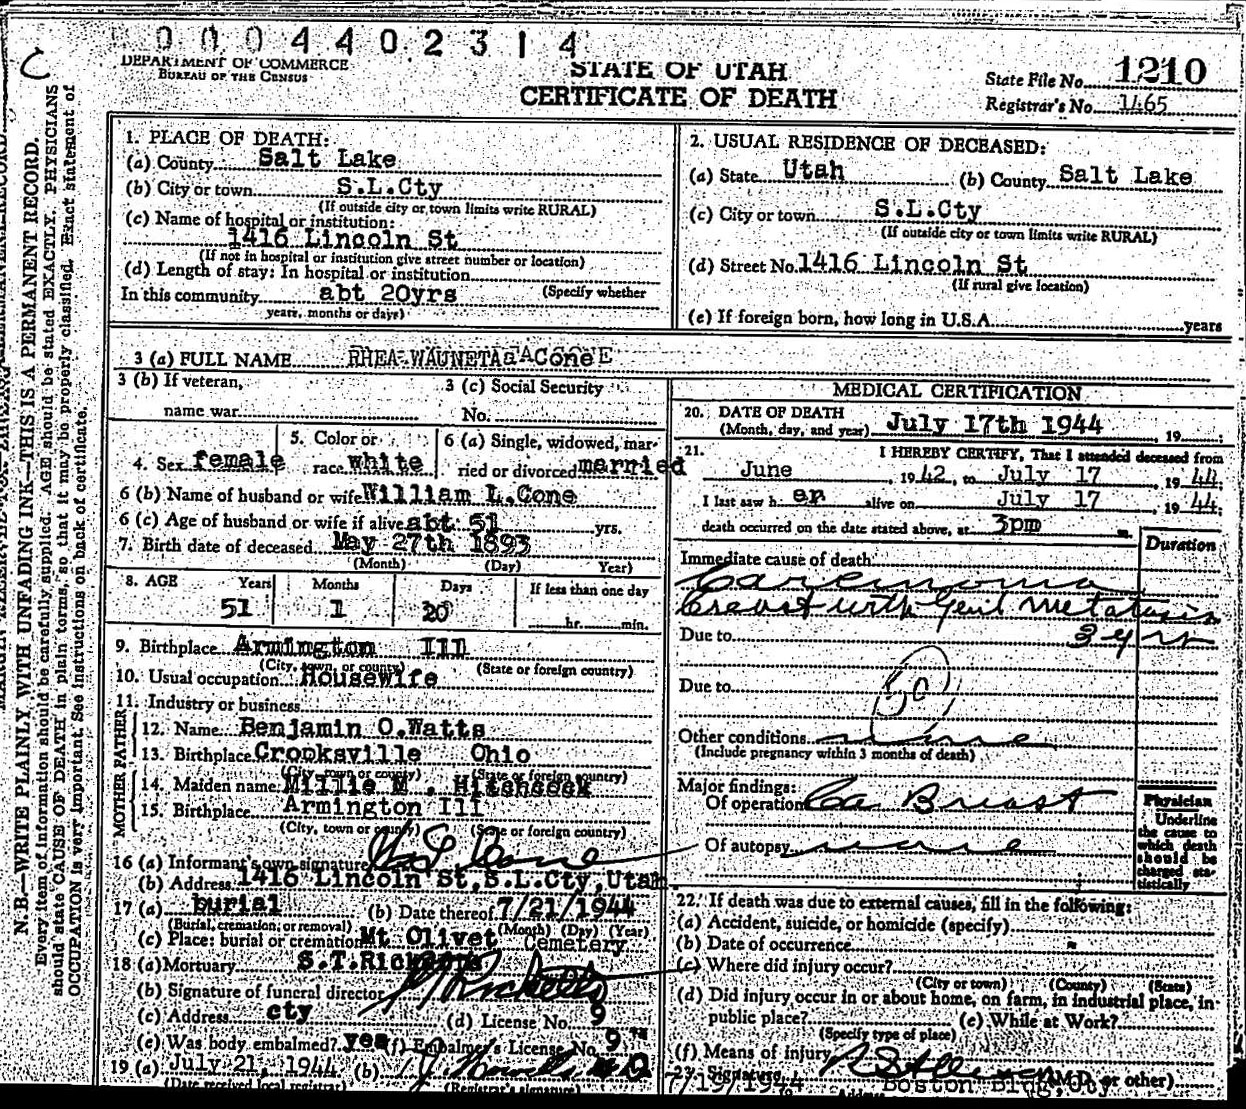 0004402314
C
DEPARTMENT OF COMMERCE
BUREAU OF THE CENSUS
STATE OF UTAH
CERTIFICATE OF DEATH
State File No. 1210
Registrar's No. 1465
N. B.—WRITE PLAINLY WITH UNFADING INK—THIS IS A PERMANENT RECORD.
Every item of information should be carefully supplied. AGE should be stated EXACTLY. PHYSICIANS
should state CAUSE OF DEATH in plain terms, so that it may be properly classified. Exact statement of
OCCUPATION is very important. See instructions on back of certificate.
1. PLACE OF DEATH:
(a) County Salt Lake
(b) City or town S.L.Cty
(If outside city or town limits write RURAL)
(c) Name of hospital or institution:
1416 Lincoln St
(If not in hospital or institution give street number or location)
(d) Length of stay: In hospital or institution
In this community abt 20yrs (Specify whether
years, months or days)
2. USUAL RESIDENCE OF DECEASED:
(a) State Utah (b) County Salt Lake
(c) City or town S.L.Cty
(If outside city or town limits write RURAL)
(d) Street No. 1416 Lincoln St
(If rural give location)
(e) If foreign born, how long in U.S.A. years
3 (a) FULL NAME RHEA WAUNETA CONE
3 (b) If veteran,
name war
3 (c) Social Security
No.
4. Sex female
5. Color or
race white
6 (a) Single, widowed, mar-
ried or divorced married
6 (b) Name of husband or wife William L.Cone
6 (c) Age of husband or wife if alive abt 51 yrs.
7. Birth date of deceased May 27th 1893
(Month) (Day) Year)
8. AGE Years Months Days If less than one day
51 1 20 hr. min.
9. Birthplace Armington Ill
(City, town, or county) (State or foreign country)
10. Usual occupation Housewife
11. Industry or business
FATHER
12. Name Benjamin O.Watts
13. Birthplace Crooksville Ohio
(City, town or county) (State or foreign country)
MOTHER
14. Maiden name Millie M. Hitchcock
15. Birthplace Armington Ill
(City, town or county) (State or foreign country)
16 (a) Informant's own signature W L Cone
(b) Address 1416 Lincoln St,S.L.Cty,Utah
17 (a) burial (b) Date thereof 7/21/1944
(Burial, cremation, or removal) (Month) (Day) (Year)
(c) Place: burial or cremation Mt Olivet Cemetery
18 (a) Mortuary S.T.Ricketts
(b) Signature of funeral director Ricketts
(c) Address cty (d) License No. 9
(e) Was body embalmed? yes (f) Embalmer's License No. 9
19 (a) July 21, 1944 (b)
(Date received local registrar) (Registrar's signature)
MEDICAL CERTIFICATION
20. DATE OF DEATH
(Month, day, and year) July 17th 1944, 19
21. I HEREBY CERTIFY, That I attended deceased from
June, 1942, to July 17, 1944;
I last saw her alive on July 17, 1944;
death occurred on the date stated above, at 3pm m.
Duration
Immediate cause of death
Carcinoma
breast with Genl Metatasis
Due to 3 yrs
Due to
50
Other conditions none
(Include pregnancy within 3 months of death)
Major findings:
Of operation Ca Breast
Of autopsy none
Physician
Underline
the cause to
which death
should be
charged sta-
tistically
22. If death was due to external causes, fill in the following:
(a) Accident, suicide, or homicide (specify)
(b) Date of occurrence
(c) Where did injury occur?
(City or town) (County) (State)
(d) Did injury occur in or about home, on farm, in industrial place, in
public place? (e) While at Work?
(Specify type of place)
(f) Means of injury
23. Signature (M.D. or other)
7/19/1944 Address Boston Bldg,Cty